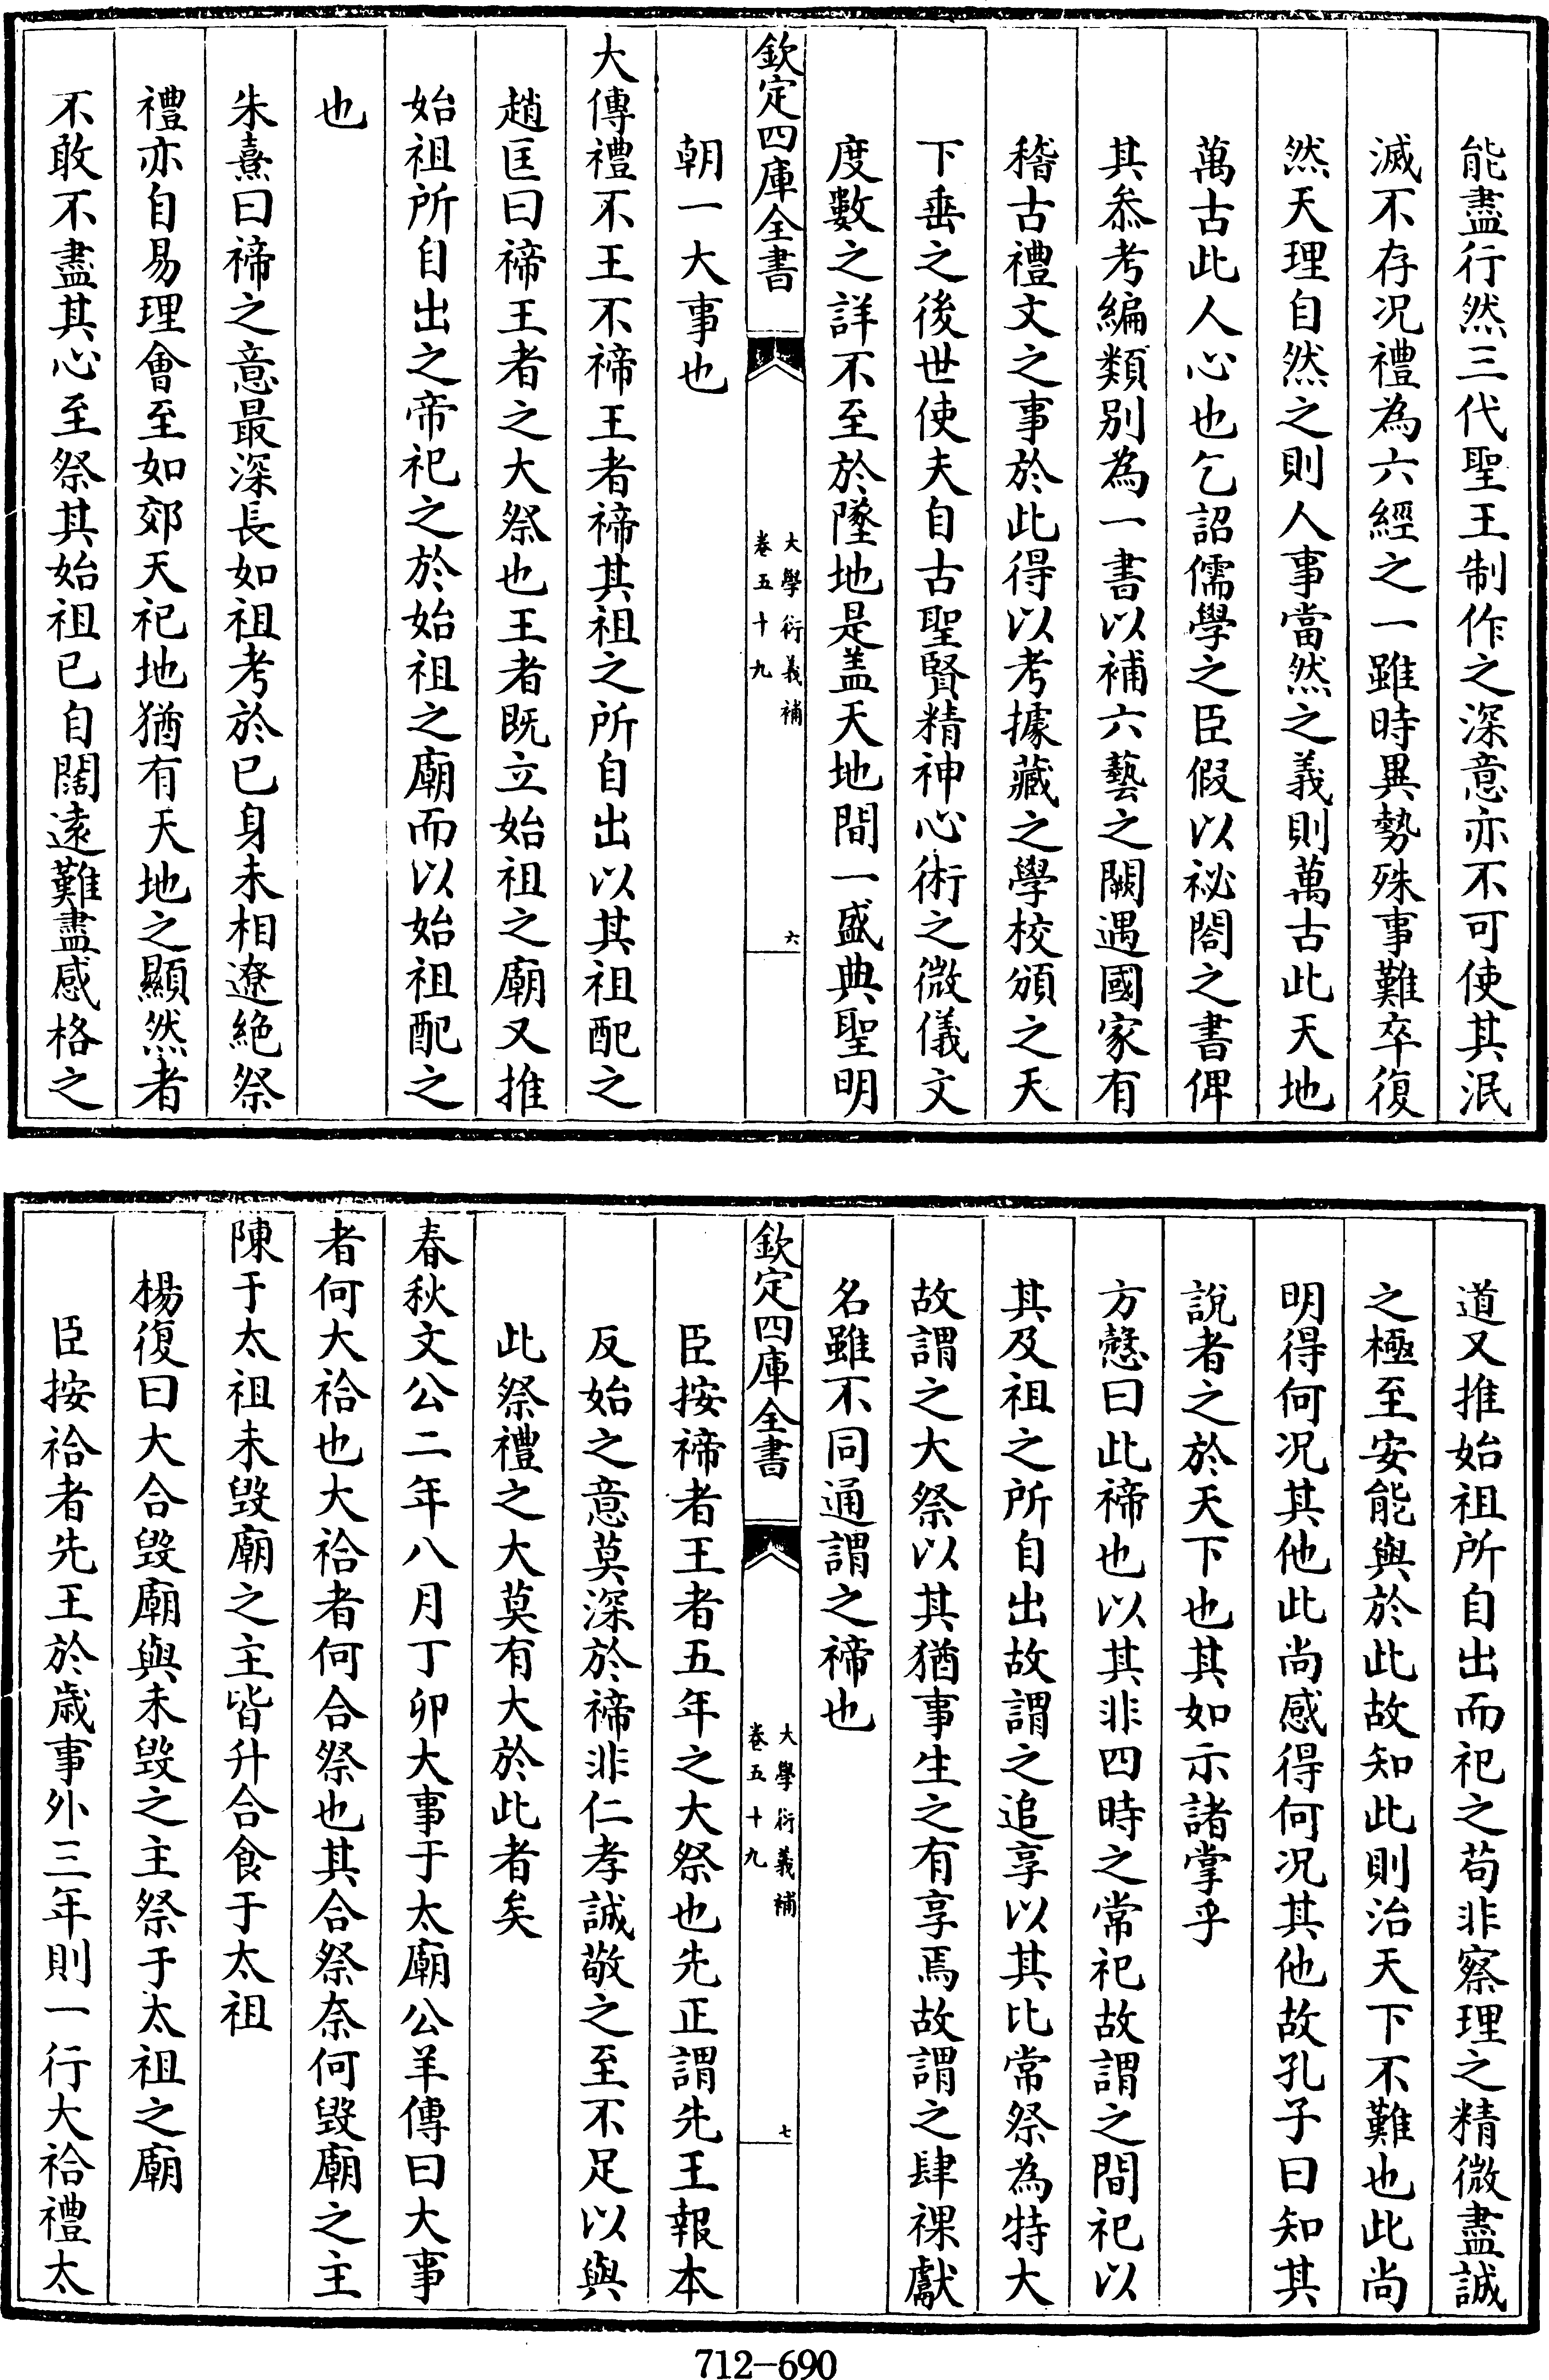 能盡行然三代聖王制作之深意亦不可使其泯
滅不存况禮為六經之一雖時異勢殊事難卒復
然天理自然之則人事當然之義則萬古此天地
萬古此人心也乞詔儒學之臣假以祕閣之書俾
其叅考編類別為一書以補六藝之闕遇國家有
稽古禮文之事於此得以考據藏之學校頒之天
下垂之後世使夫自古聖賢精神心術之微儀文
度數之詳不至於墜地是盖天地間一盛典聖明
欽定四庫全書
大學衍義補
卷五十九
六
朝一大事也
大傳禮不王不禘王者禘其祖之所自出以其祖配之
趙匡曰禘王者之大祭也王者既立始祖之廟又推
始祖所自出之帝祀之於始祖之廟而以始祖配之
也
朱熹曰禘之意最深長如祖考於已身未相遼絶祭
禮亦自易理會至如郊天祀地猶有天地之顯然者
不敢不盡其心至祭其始祖已自闊逺難盡感格之
道又推始祖所自出而祀之苟非察理之精微盡誠
之極至安能與於此故知此則治天下不難也此尚
明得何况其他此尚感得何况其他故孔子曰知其
說者之於天下也其如示諸掌乎
方慤曰此禘也以其非四時之常祀故謂之間祀以
其及祖之所自出故謂之追享以其比常祭為特大
故謂之大祭以其猶事生之有享焉故謂之肆祼獻
名雖不同通謂之禘也
欽定四庫全書
大學衍義補
卷五十九
七
臣按禘者王者五年之大祭也先正謂先王報本
反始之意莫深於禘非仁孝誠敬之至不足以與
此祭禮之大莫有大於此者矣
春秋文公二年八月丁卯大事于太廟公羊傳曰大事
者何大祫也大祫者何合祭也其合祭奈何毀廟之主
陳于太祖未毀廟之主皆升合食于太祖
楊復曰大合毀廟與未毀之主祭于太祖之廟
臣按祫者先王於歲事外三年則一行大祫禮太
712-690